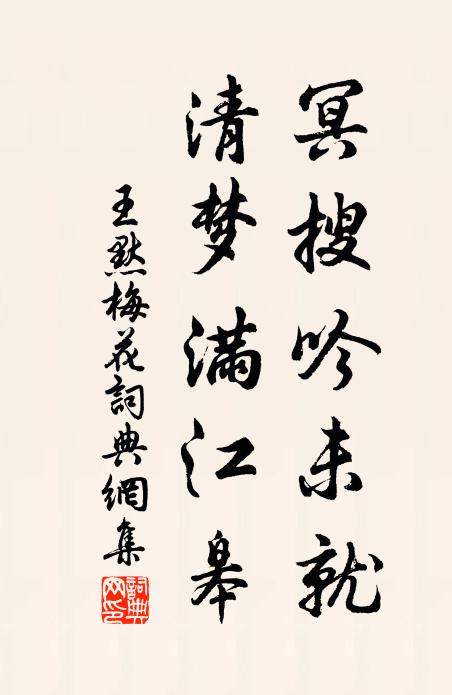 冥搜吟未就
清梦满江皋
王默梅花詞典網集
詞典网印